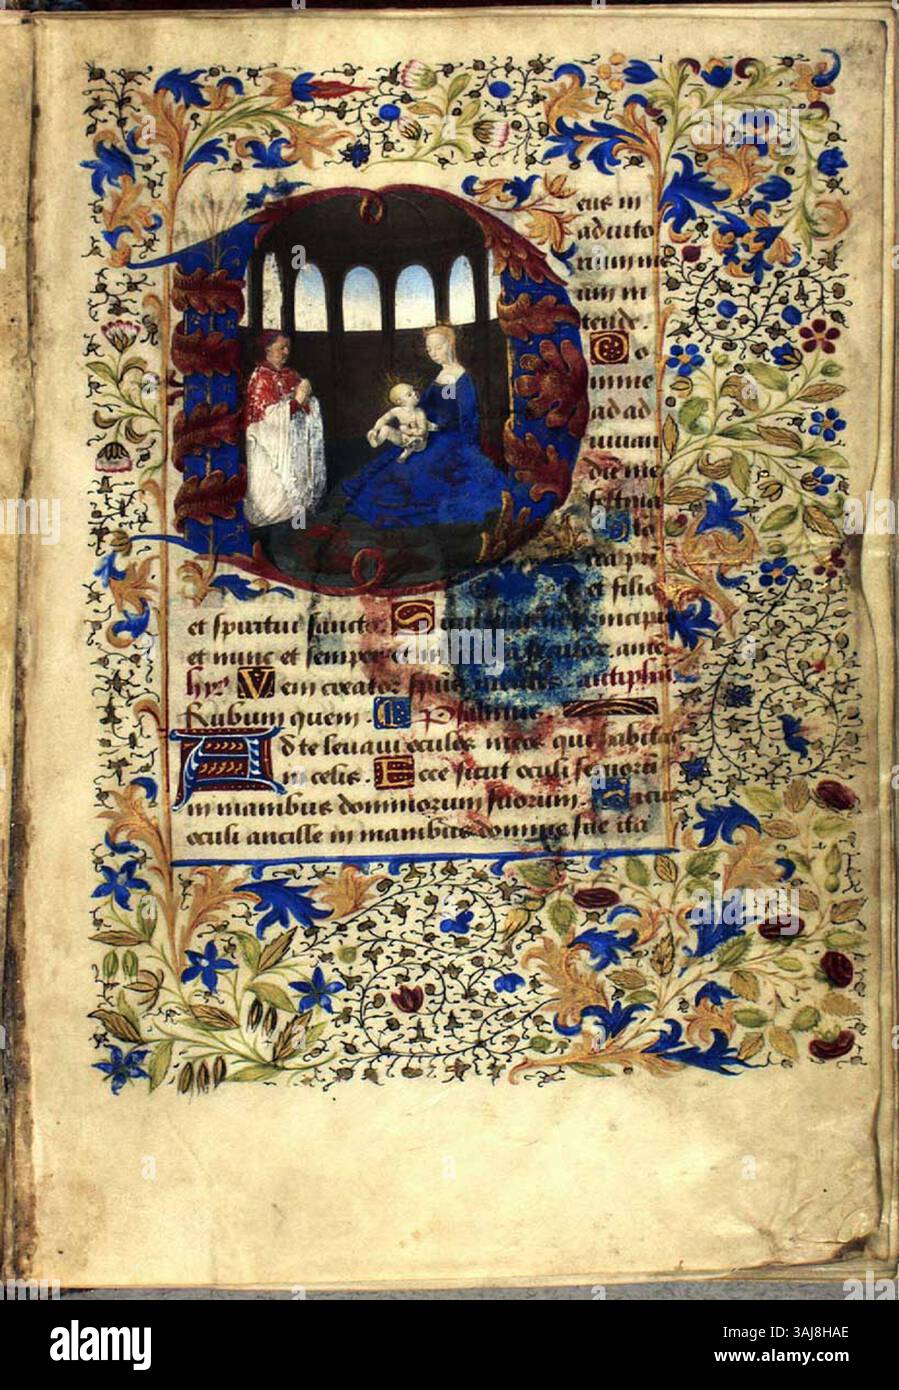 eus in
adiuto
rium me
um in
tende.
Do
mine
ad ad
iuuan
dū me
festina
Glo
ria pr̄i
et filio
et spiritui sancto. Sicut erat in principio
et nunc et semper et in secula seculor. ame
hy᷒ Veni creator spūs antiphū
Rubum quem. Psalmus
Ad te leuaui oculos meos qui habitas
in celis. Ecce sicut oculi seruorū
in manibus dominorum suorum. Sicut
oculi ancille in manibus domine sue ita
alamy
Image ID: 3AJ8HAE
www.alamy.com